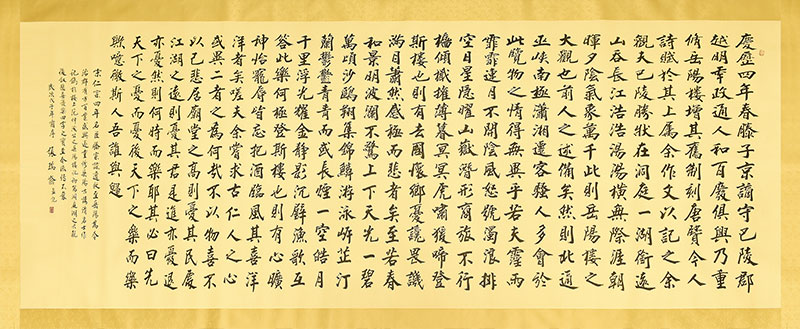 慶歷四年春滕子京謫守巴陵郡
越明年政通人和百廢俱興乃重
脩岳陽樓增其舊制刻唐賢今人
詩賦於其上屬余作文以記之余
觀夫巴陵勝狀在洞庭一湖銜遠
山吞長江浩浩湯湯橫無際涯朝
暉夕陰氣象萬千此則岳陽樓之
大觀也前人之述備矣然則北通
巫峽南極瀟湘遷客騷人多會於
此覽物之情得無異乎若夫霪雨
霏霏連月不開陰風怒號濁浪排
空日星隱耀山嶽潛形商旅不行
檣傾檝摧薄暮冥冥虎嘯猿啼登
斯樓也則有去國懷鄉憂讒畏譏
滿目蕭然感極而悲者矣至若春
和景明波瀾不驚上下天光一碧
萬頃沙鷗翔集錦鱗游泳岸芷汀
蘭鬱鬱青青而或長煙一空皓月
千里浮光耀金靜影沉璧漁歌互
答此樂何極登斯樓也則有心曠
神怡寵辱皆忘把酒臨風其喜洋
洋者矣嗟夫余嘗求古仁人之心
或異二者之為何哉不以物喜不
以己悲居廟堂之高則憂其民處
江湖之遠則憂其君是進亦憂退
亦憂然則何時而樂耶其必曰先
天下之憂而憂後天下之樂而樂
歟噫微斯人吾誰與歸